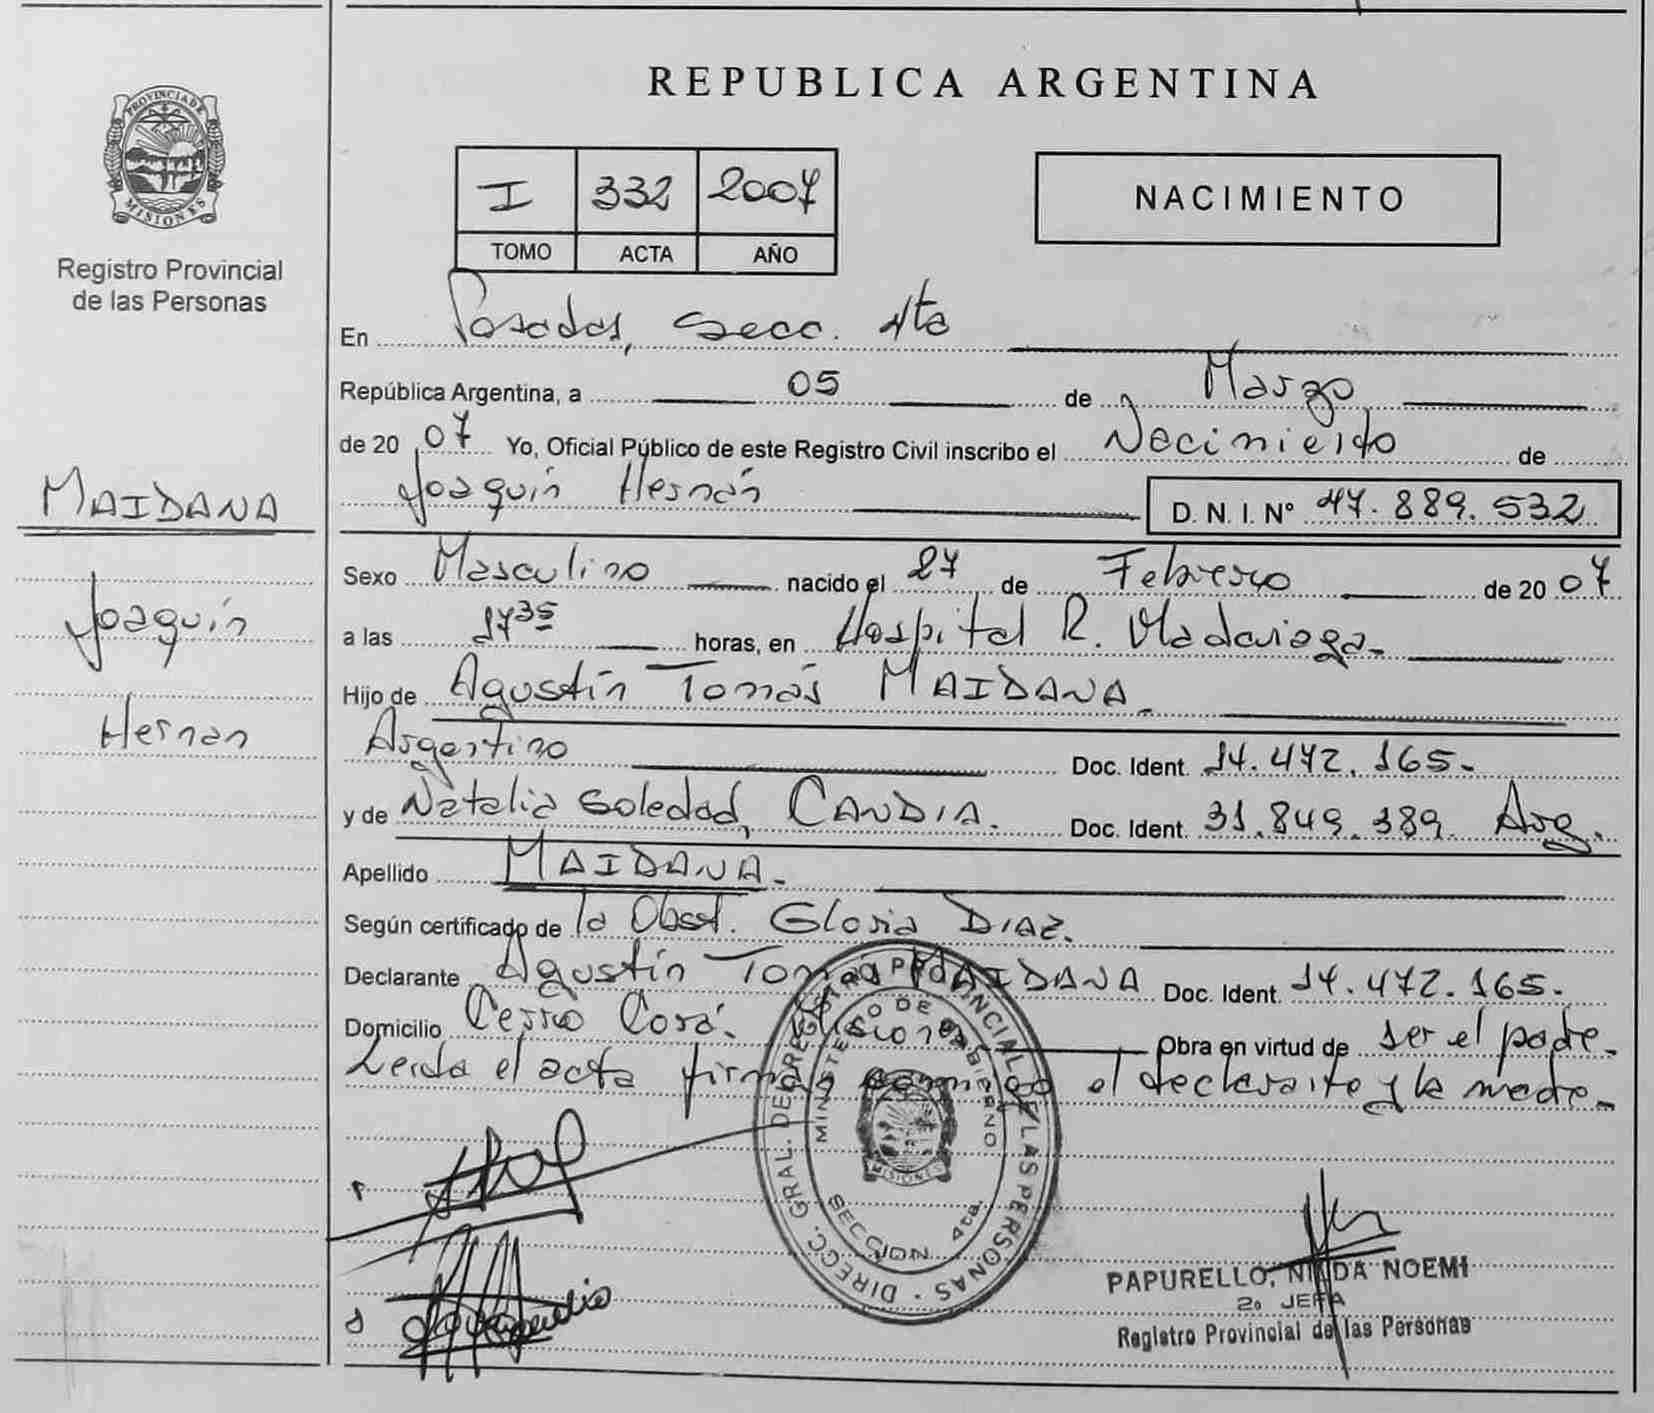 REPUBLICA ARGENTINA
PROVINCIA DE
MISIONES
Registro Provincial
de las Personas
I 332 2007
TOMO ACTA AÑO
NACIMIENTO
En Posadas, Secc. 4ta
República Argentina, a 05 de Marzo
de 20 07 Yo, Oficial Público de este Registro Civil inscribo el Nacimiento de
Joaquín Hernán D. N. I. N° 47.889.532
MAIDANA
Joaquín
Hernan
Sexo Masculino nacido el 27 de Febrero de 20 07
a las 17 35 horas, en Hospital R. Madariaga-
Hijo de Agustín Tomás MAIDANA-
Argentino Doc. Ident. 14.472.165-
y de Natalia Soledad, CANDIA. Doc. Ident. 31.849.389. Arg.
Apellido MAIDANA-
Según certificado de la Obst. Gloria DIAZ.
Declarante Agustín Tomás MAIDANA Doc. Ident. 14.472.165-
Domicilio Cerro Corá. Misiones Obra en virtud de ser el padre-
Leida el acta firman conmigo el declarante y la madre-
DIRECC. GRAL. DE REGISTRO PROVINCIAL DE LAS PERSONAS
MINISTERIO DE GOBIERNO
MISIONES
SECCION 4ta.
PAPURELLO, NILDA NOEMI
2a JEFA
Registro Provincial de las Personas